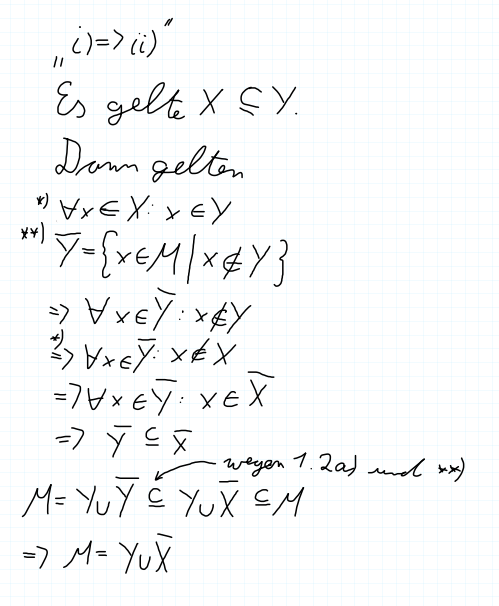 „i)=>ii)“
Es gelte X ⊆ Y.
Dann gelten
*) ∀x∈X: x∈Y
**) Y̅={x∈M|x∉Y}
=> ∀x∈Y̅: x∉Y
*) => ∀x∈Y̅: x∉X
=> ∀x∈Y̅: x∈X̅
=> Y̅ ⊆ X̅
wegen 1.2a) und **)
M= Y∪Y̅ ⊆ Y∪X̅ ⊆ M
=> M= Y∪X̅